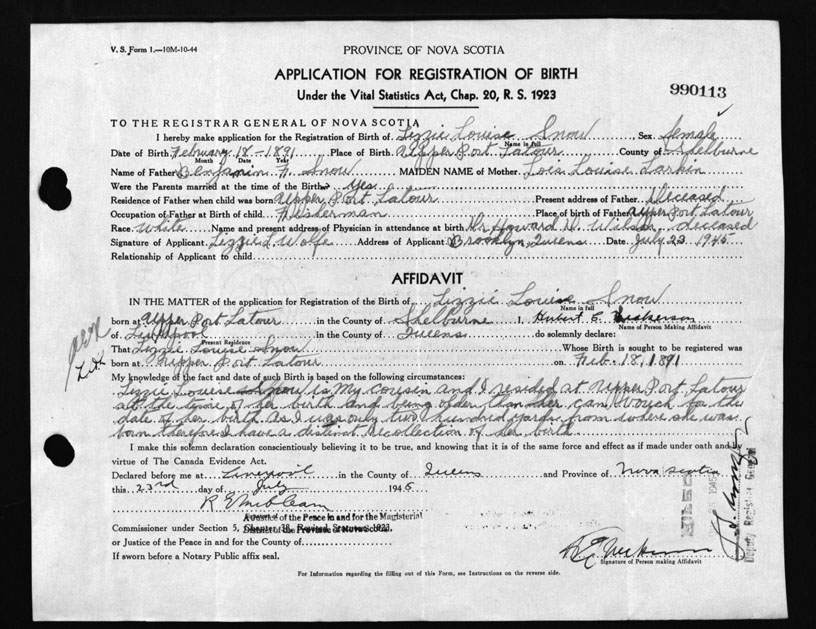 V. S. Form 1.—10M-10-44
PROVINCE OF NOVA SCOTIA
APPLICATION FOR REGISTRATION OF BIRTH
Under the Vital Statistics Act, Chap. 20, R. S. 1923
990113
TO THE REGISTRAR GENERAL OF NOVA SCOTIA
I hereby make application for the Registration of Birth of Lizzie Louise Snow, Sex female
Name in full
Date of Birth February 18-1891 Place of Birth Upper Port Latour County of Shelburne
Month Date Year
Name of Father Benjamin F. Snow MAIDEN NAME of Mother Lois Louise Larkin
Were the Parents married at the time of the Birth? Yes
Residence of Father when child was born Upper Port Latour Present address of Father Deceased
Occupation of Father at Birth of child Fisherman Place of birth of Father Upper Port Latour
Race White Name and present address of Physician in attendance at birth Dr Howard Wilson deceased
Signature of Applicant Lizzie L Wolfe Address of Applicant Brooklyn, Queens Date July 23 1945
Relationship of Applicant to child
AFFIDAVIT
IN THE MATTER of the application for Registration of the Birth of Lizzie Louise Snow
Name in full
born at Upper Port Latour in the County of Shelburne I, Hubert E.
Name of Person Making Affidavit
of Liverpool in the County of Queens do solemnly declare:
Present Residence
That Lizzie Louise Snow Whose Birth is sought to be registered was
born at Upper Port Latour on Feb. 18, 1891
My knowledge of the fact and date of such Birth is based on the following circumstances:
Lizzie Louise Snow is my cousin and I resided at Upper Port Latour
at the time of her birth and being older than her can vouch for the
date of her birth as I was only two hundred yards from where she was
born therefore I have a distinct recollection of her birth.
I make this solemn declaration conscientiously believing it to be true, and knowing that it is of the same force and effect as if made under oath and by
virtue of The Canada Evidence Act.
Declared before me at Liverpool in the County of Queens and Province of Nova Scotia
this 23rd day of July 1945
A Justice of the Peace in and for the Magisterial
District of the Province of Nova Scotia.
Commissioner under Section 5, Chapter 38, Revised Statutes, 1923,
or Justice of the Peace in and for the County of
If sworn before a Notary Public affix seal.
Signature of Person making Affidavit
For Information regarding the filling out of this Form, see Instructions on the reverse side.
FILED
Deputy Registrar General